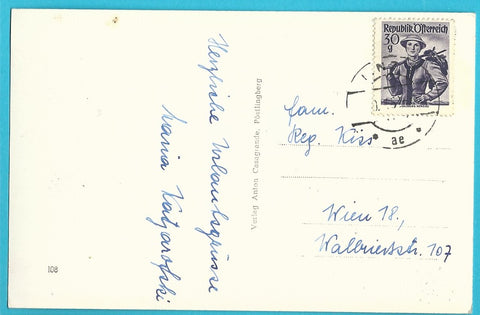 Herzliche Urlaubsgrüsse
Maria
108
Verlag Anton Casagrande, Pöstlingberg
Republik Österreich
30
g
ae
Fam.
Reg. Kiss
Wien 18.,
107